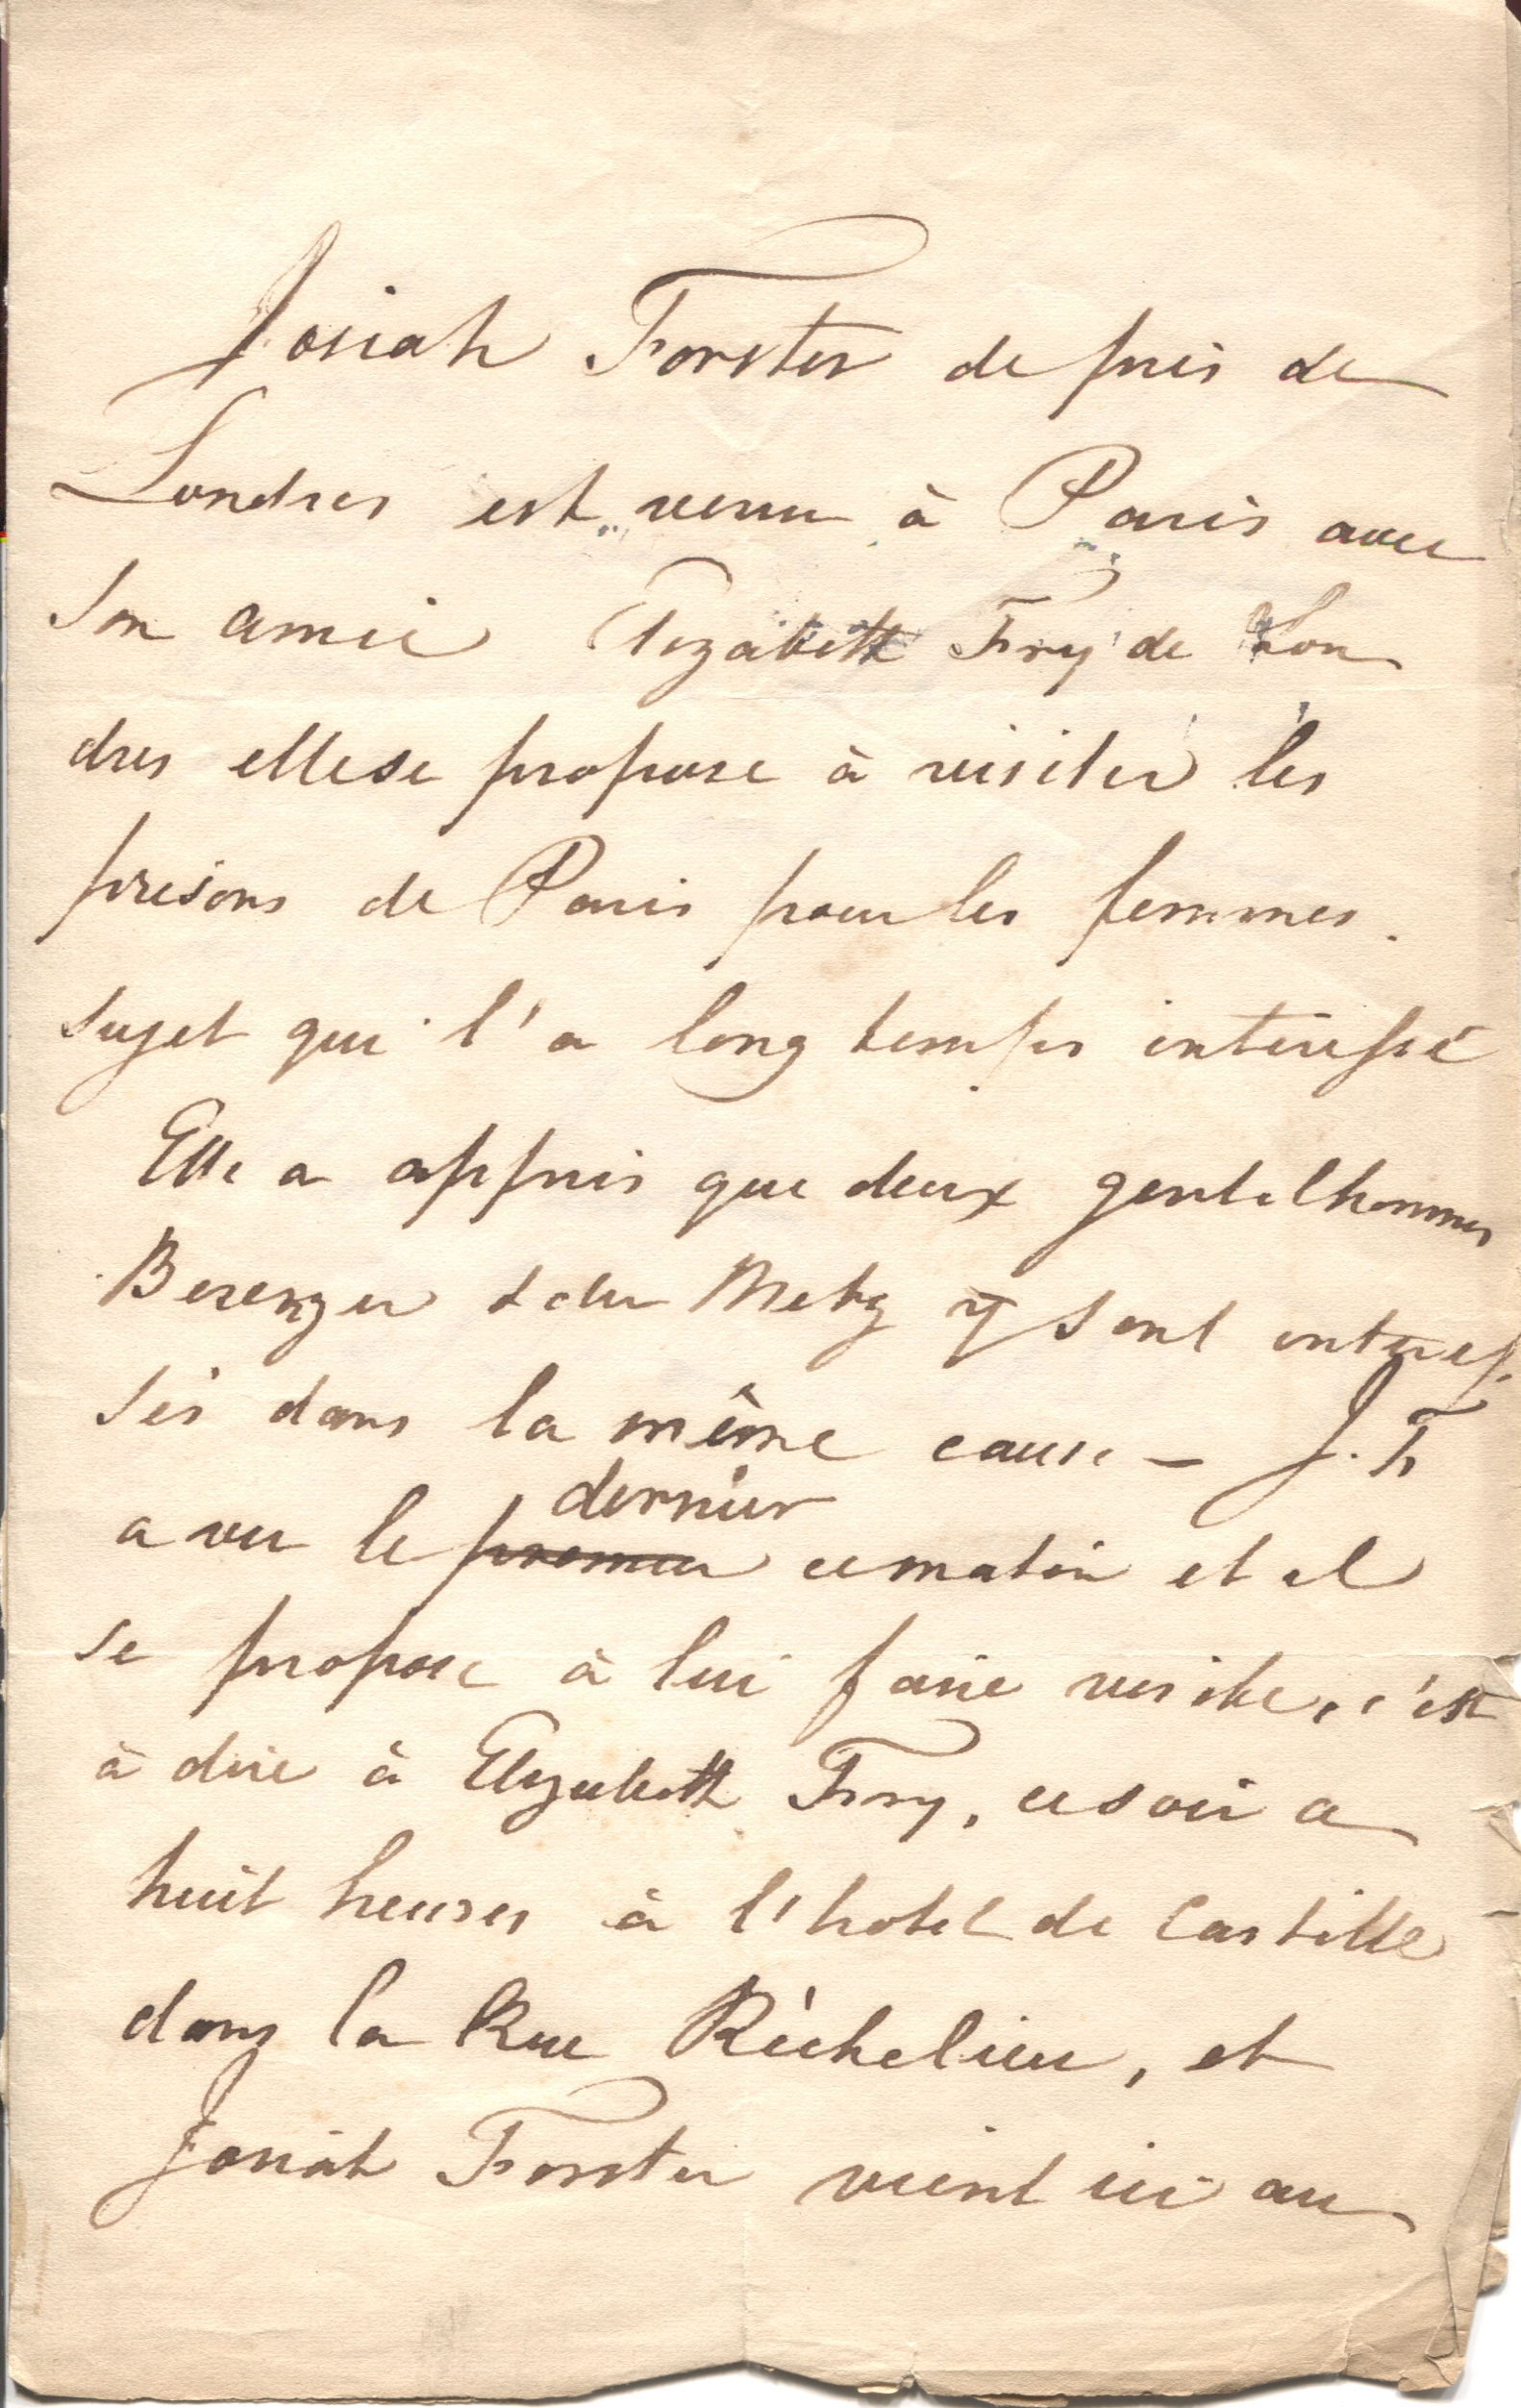 Josiah Forster de près de
Londres est venu à Paris avec
son amie Elizabeth Fry de Lon
dres elle se propose à visiter les
prisons de Paris pour les femmes.
sujet qui l'a long temps interessé
Elle a appris que deux gentilhommes
Berenger & du Metz y sont interes
sés dans la même cause – J. F
dernier
a vu le premier ce matin et il
se propose à lui faire visite, c'est
à dire à Elizabeth Fry, ce soir a
huit heures à l'hotel de Castille
dans la Rue Richelieu, et
Josiah Forster vient ici au